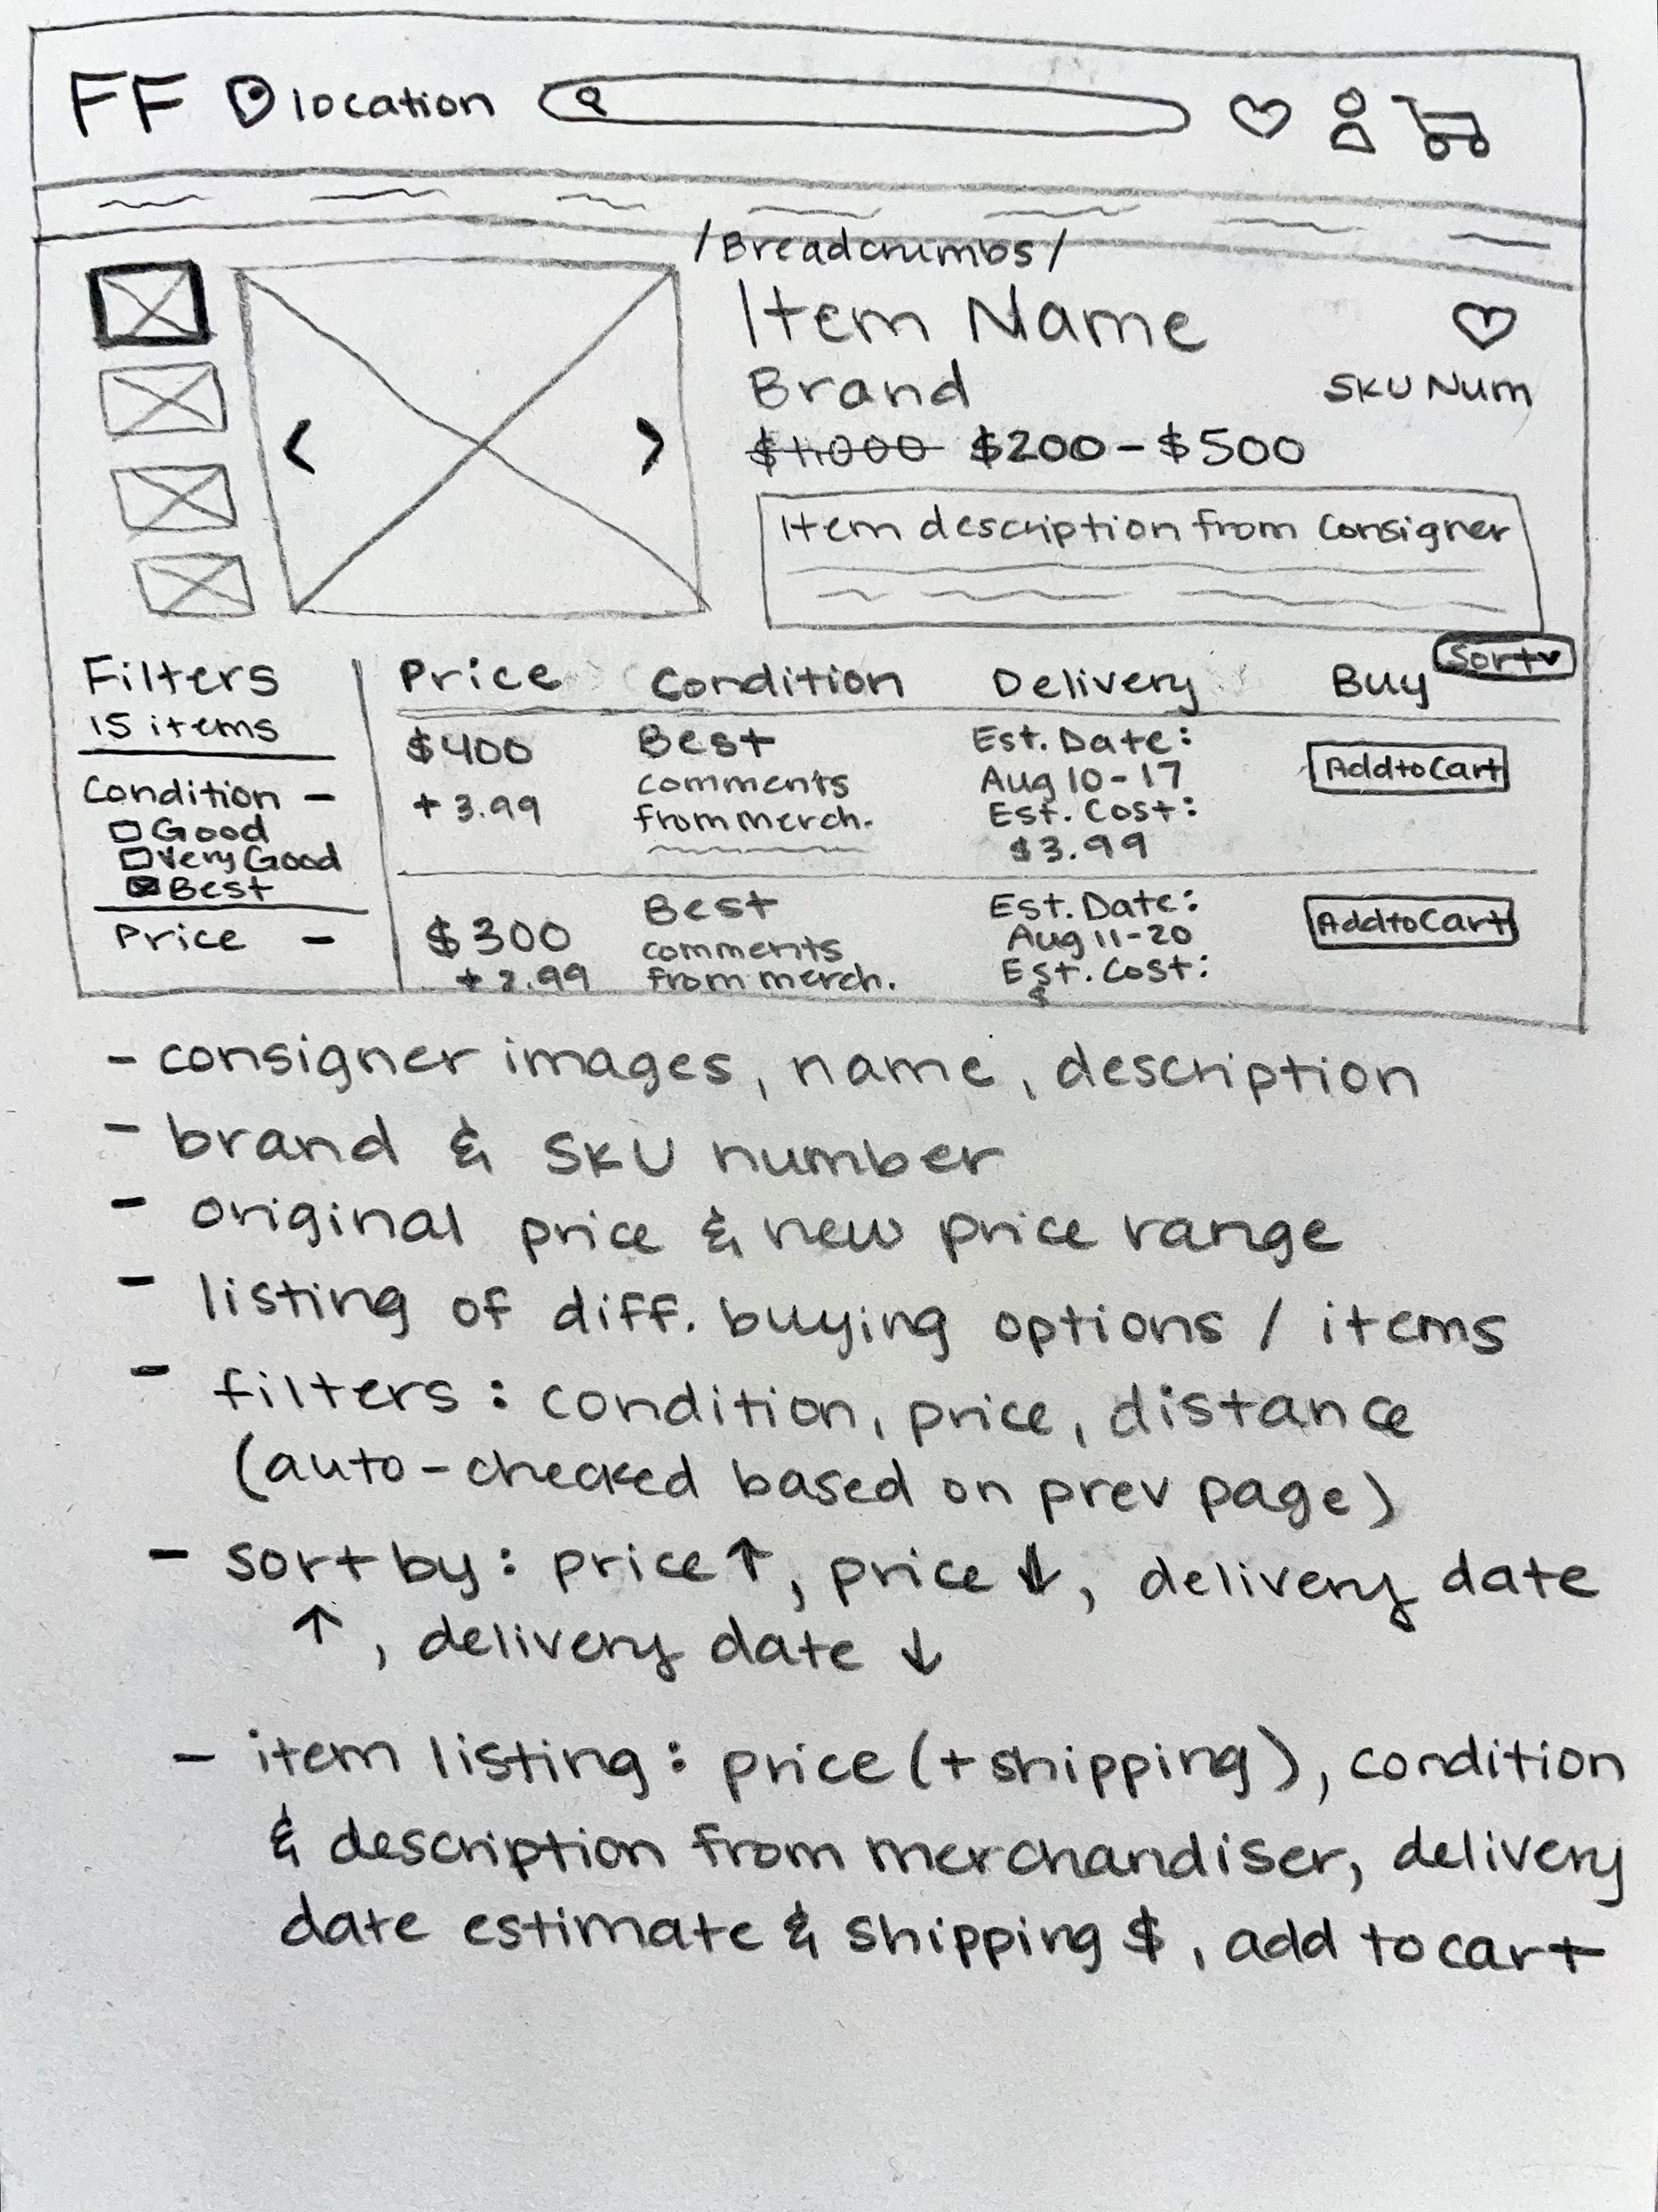 FF location
/Breadcrumbs/
Item Name
Brand SKU Num
$1,000 $200-$500
Item description from Consigner
Filters
15 items
Condition -
Good
Very Good
Best
Price -
Sort
Price Condition Delivery Buy
$400
+ 3.99
Best
comments
from merch.
Est. Date:
Aug 10-17
Est. Cost:
$3.99
Add to Cart
$300
+ 2.99
Best
comments
from merch.
Est. Date:
Aug 11-20
Est. Cost:
$
Add to Cart
- consigner images, name, description
- brand & SKU number
- original price & new price range
- listing of diff. buying options / items
- filters: condition, price, distance
(auto-checked based on prev page)
- sort by: price ↑, price ↓, delivery date
↑, delivery date ↓
- item listing: price (+ shipping), condition
& description from merchandiser, delivery
date estimate & shipping $, add to cart